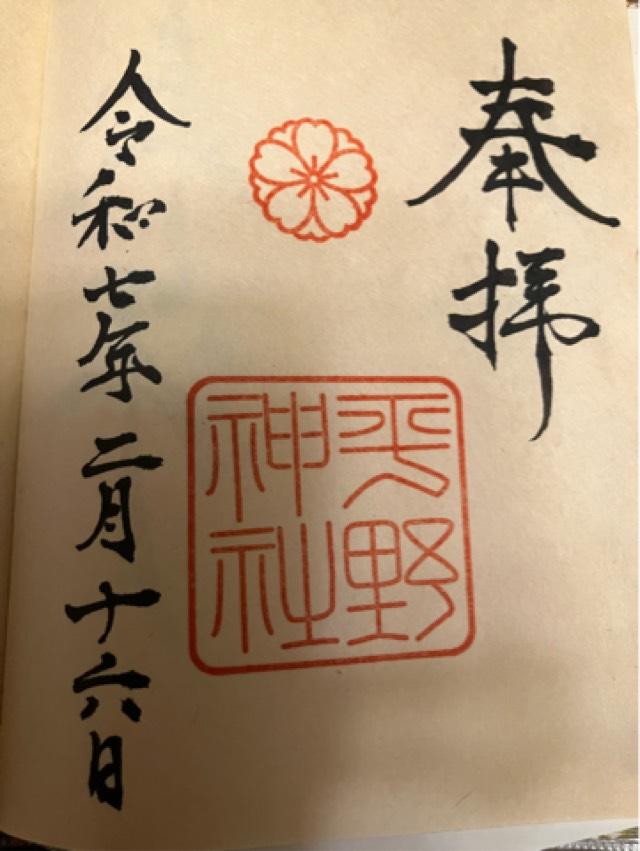 奉拝
平野
神社
令和七年二月十六日